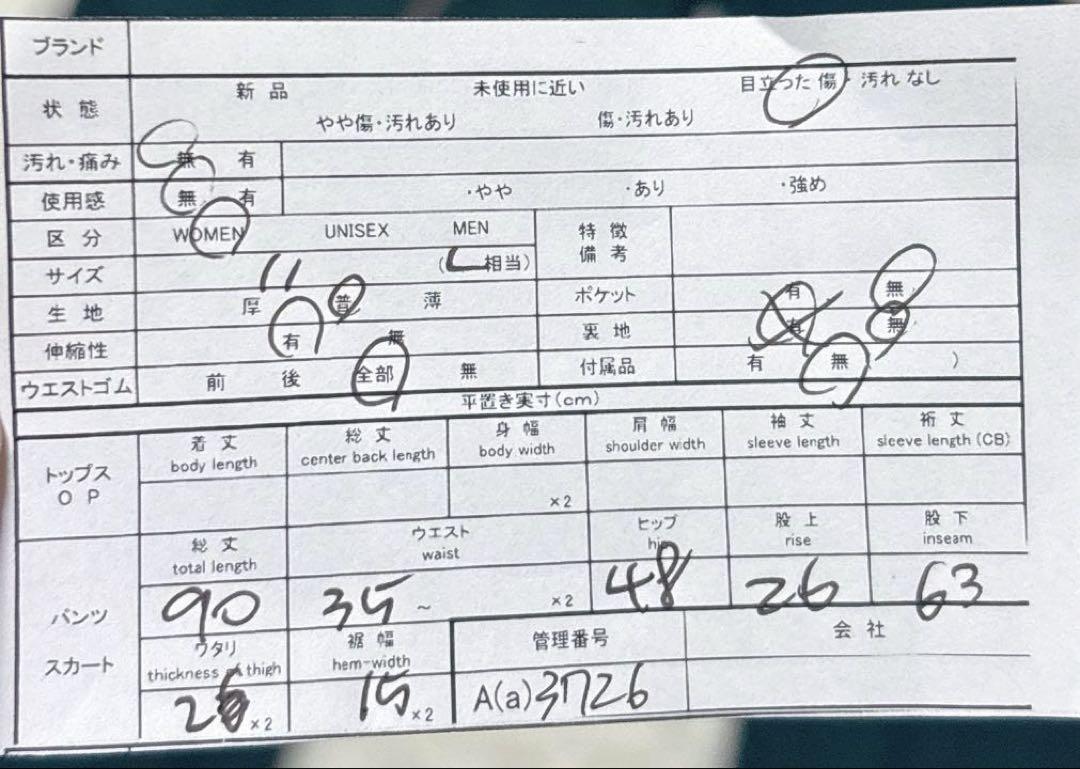 ブランド
状態 新品 未使用に近い 目立った傷・汚れなし
やや傷・汚れあり 傷・汚れあり
汚れ・痛み 無 有
使用感 無 有 ・やや ・あり ・強め
区分 WOMEN UNISEX MEN 特徴備考
サイズ 11 (L相当)
生地 厚 普 薄 ポケット 有 無
伸縮性 有 無 裏地 有 無
ウエストゴム 前 後 全部 無 付属品 有 無 )
平置き実寸(cm)
トップス OP 着丈 総丈 身幅 肩幅 袖丈 裄丈
body length center back length body width shoulder width sleeve length sleeve length (CB)
×2
総丈 ウエスト ヒップ 股上 股下
total length waist hip rise inseam
パンツ 90 35 ~ ×2 48 26 63
スカート ワタリ 裾幅 管理番号 会社
thickness thigh hem-width
×2 15 ×2 A(a)3726